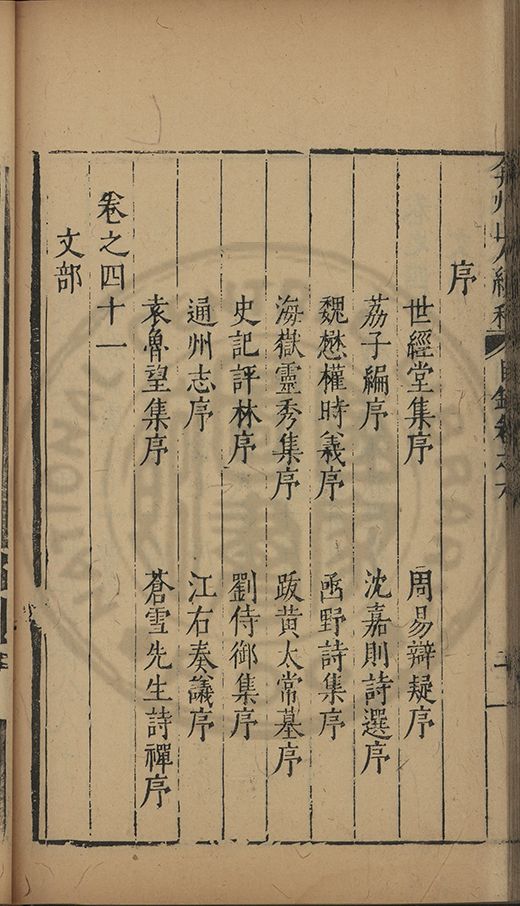 弇州山人續稿 目錄卷之六
序
世經堂集序 周易辯疑序
荔子編序 沈嘉則詩選序
魏懋權時義序 凾野詩集序
海嶽靈秀集序 跋黃太常墓序
史記評林序 劉侍御集序
通州志序 江右奏議序
袁魯望集序 蒼雪先生詩禪序
卷之四十一
文部